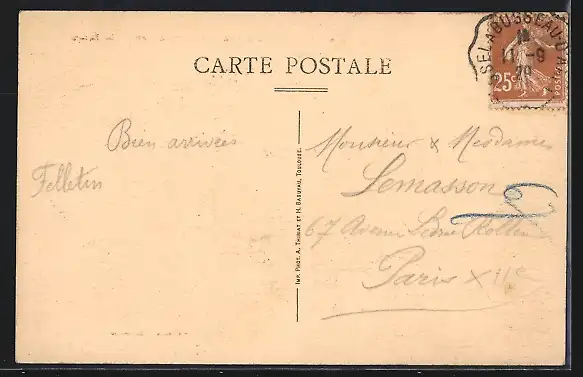 CARTE POSTALE
Bien arrivées
Felletin
IMP. PHOT. A. THIRIAT ET H. BASUYAU, TOULOUSE.
Monsieur & Mesdames
Lemasson
67 Avenue Ledru Rollin
Paris XIIe
SELABUSSEAU-D'A
11 -9
29
25c
POSTES